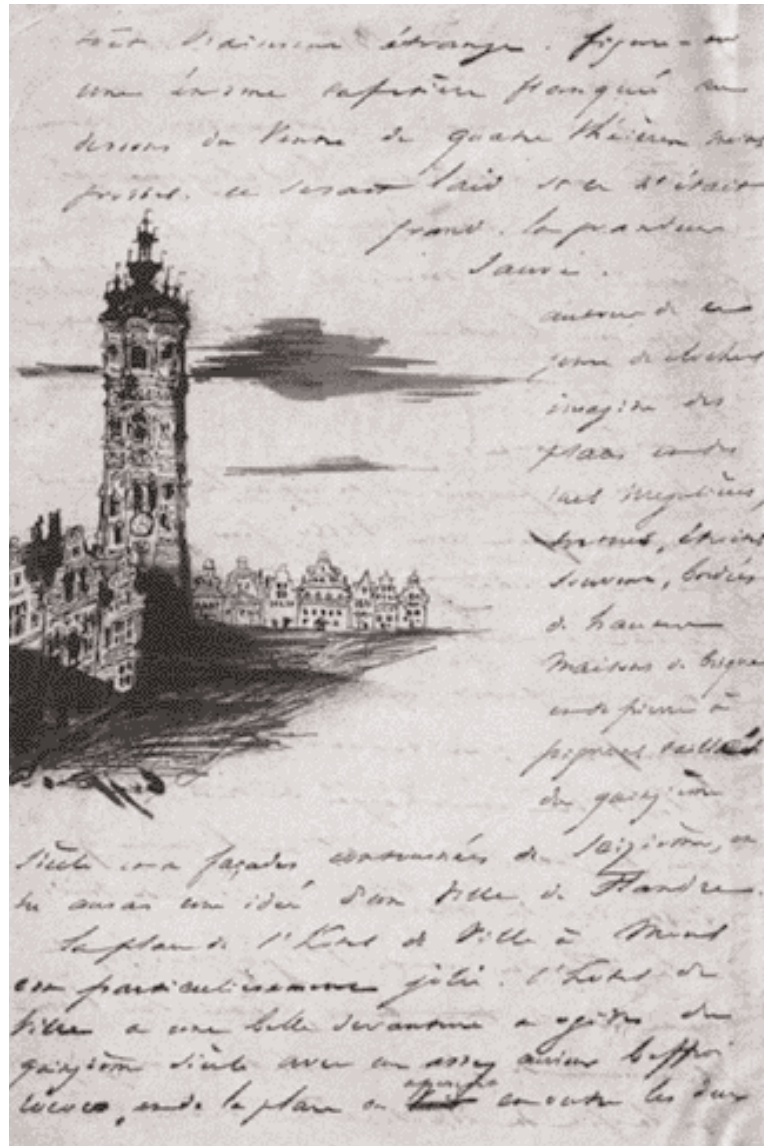 étrange. figure-toi
une énorme cafetière flanquée au
dessous du ventre de quatre théières moins
grosses. ce serait laid si ce n'était
grand. la grandeur
sauve.
autour de ce
genre de clochers
imagine des
places et des
rues irrégulières,
étroites
souvent, bordées
de hautes
maisons de brique
et de pierre à
pignons taillés
du quinzième
siècle et à façades contournées du seizième, et
tu auras une idée d'une ville de Flandre.
La place de l'hôtel de ville à Mons
est particulièrement jolie. l'hôtel de
ville a une belle devanture à ogives du
quinzième siècle avec un assez curieux beffroi
rococo, et de la place on aperçoit en outre les deux